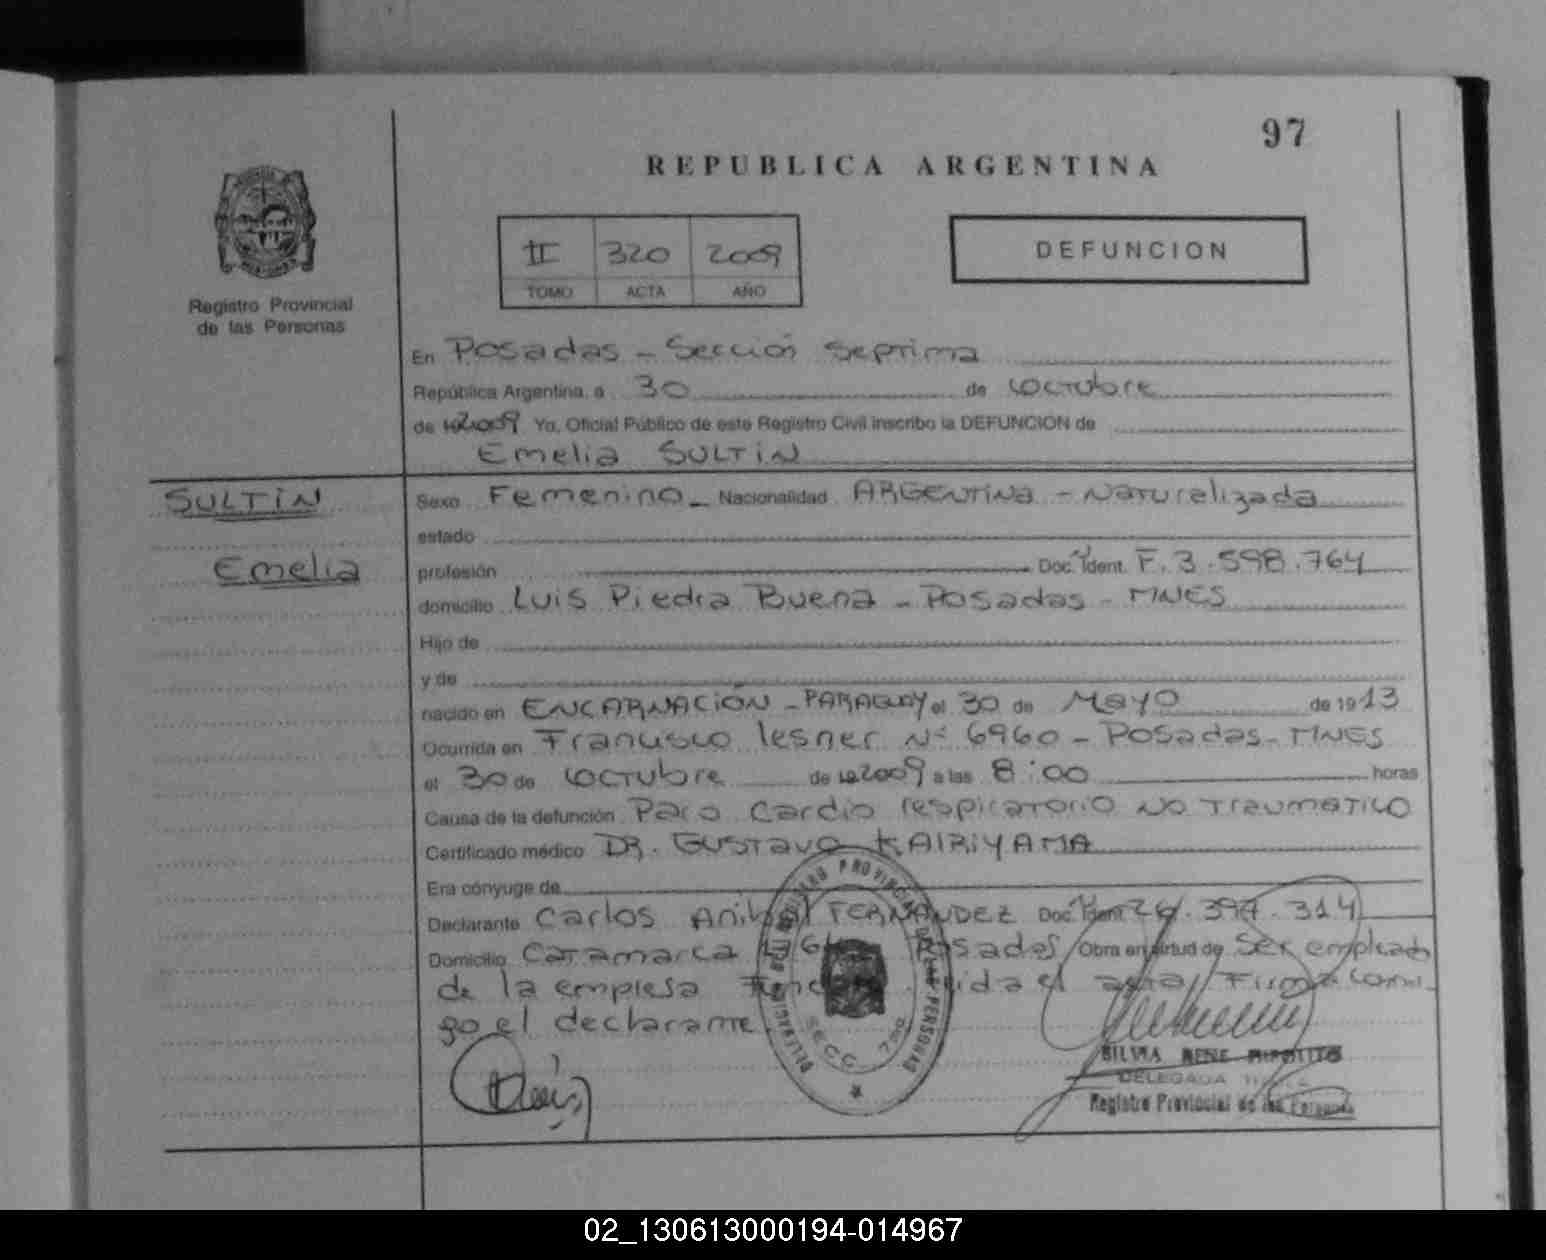 97
REPUBLICA ARGENTINA
II 320 2009
TOMO ACTA AÑO
DEFUNCION
Registro Provincial
de las Personas
En Posadas - Sección Septima
República Argentina, a 30 de octubre
de 2009 Yo, Oficial Público de este Registro Civil inscribo la DEFUNCION de
Emelia SULTIN
SULTIN
Emelia
Sexo Femenino - Nacionalidad ARGENTINA - Naturalizada
estado
profesión Doc. Ident. F. 3.598.764
domicilio Luis Piedra Buena - Posadas - MNES
Hijo de
y de
nacido en ENCARNACIÓN - PARAGUAY el 30 de Mayo de 1913
Ocurrida en Francisco lesner Nº 6960 - Posadas - MNES
el 30 de octubre de 2009 a las 8:00 horas
Causa de la defunción Paro Cardio respiratorio No Traumatico
Certificado médico DR. Gustavo KAIRIYAMA
Era cónyuge de
Declarante Carlos Anibal FERNANDEZ Doc. Ident.
Domicilio Catamarca Posadas Obra en virtud de Ser empleado
de la empresa el acta, Firma conmi
go el declarante
SECC. 7ma
SILVIA RENE HIPOLITO
DELEGADA
Registro Provincial de las Personas
02_130613000194-014967